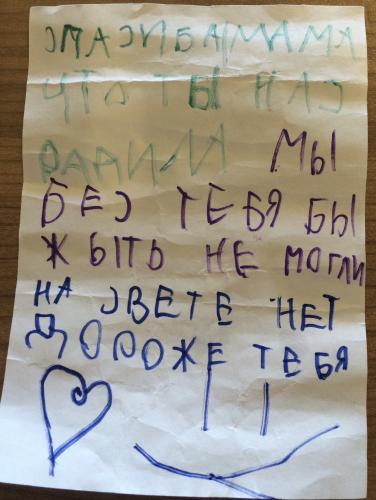 СПАСИБА МАМА
ЧТО ТЫ НАС
РАДИЛА МЫ
БЕС ТЕБЯ БЫ
ЖЫТЬ НЕ МОГЛИ
НА СВЕТЕ НЕТ
ДОРОЖЕ ТЕБЯ